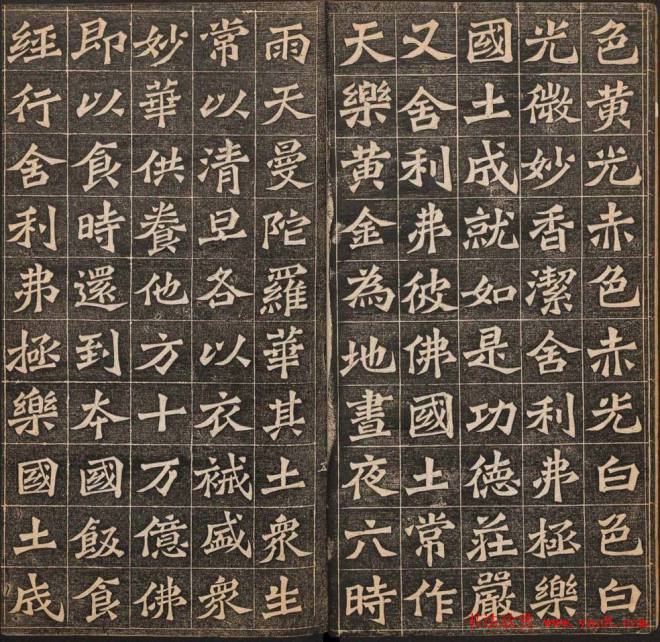 色黄光赤色赤光白色白
光微妙香潔舍利弗極樂
國土成就如是功德莊嚴
又舍利弗彼佛國土常作
天樂黄金為地晝夜六時
雨天曼陀羅華其土衆生
常以清旦各以衣裓盛衆
妙華供養他方十万億佛
即以食時還到本國飯食
經行舍利弗極樂國土成